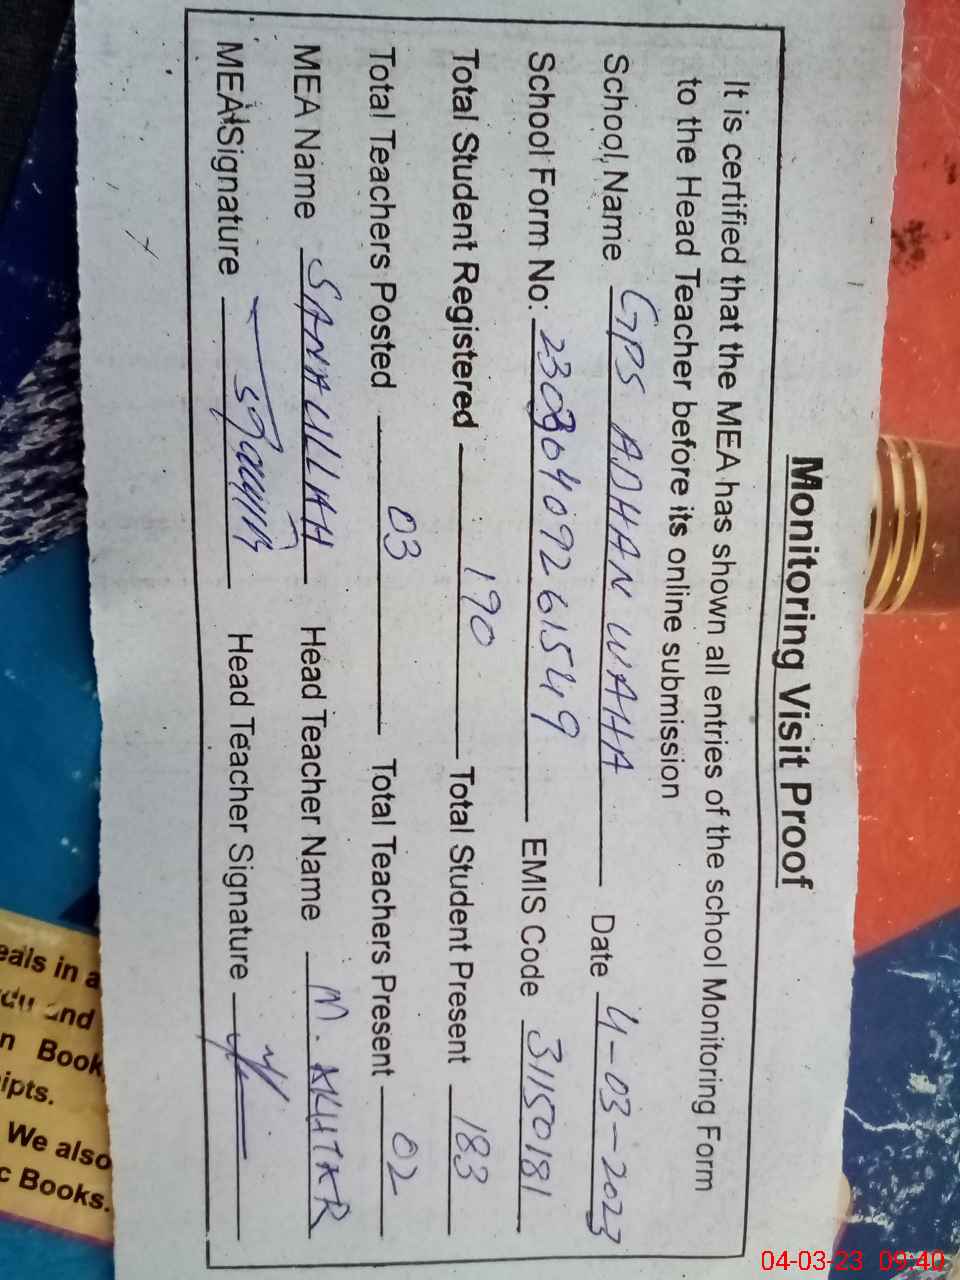 Monitoring Visit Proof
It is certified that the MEA has shown all entries of the school Monitoring Form
to the Head Teacher before its online submission
School Name GPS ADHAN WAHA Date 4-03-2023
School Form No: 23030409261549 EMIS Code 31150181
Total Student Registered 190 Total Student Present 183
Total Teachers Posted 03 Total Teachers Present 02
MEA Name SANAULLAH Head Teacher Name M. AKHTAR
MEA Signature Head Teacher Signature
eals in a
and
n Book
ipts.
We also
c Books.
04-03-23 09:40